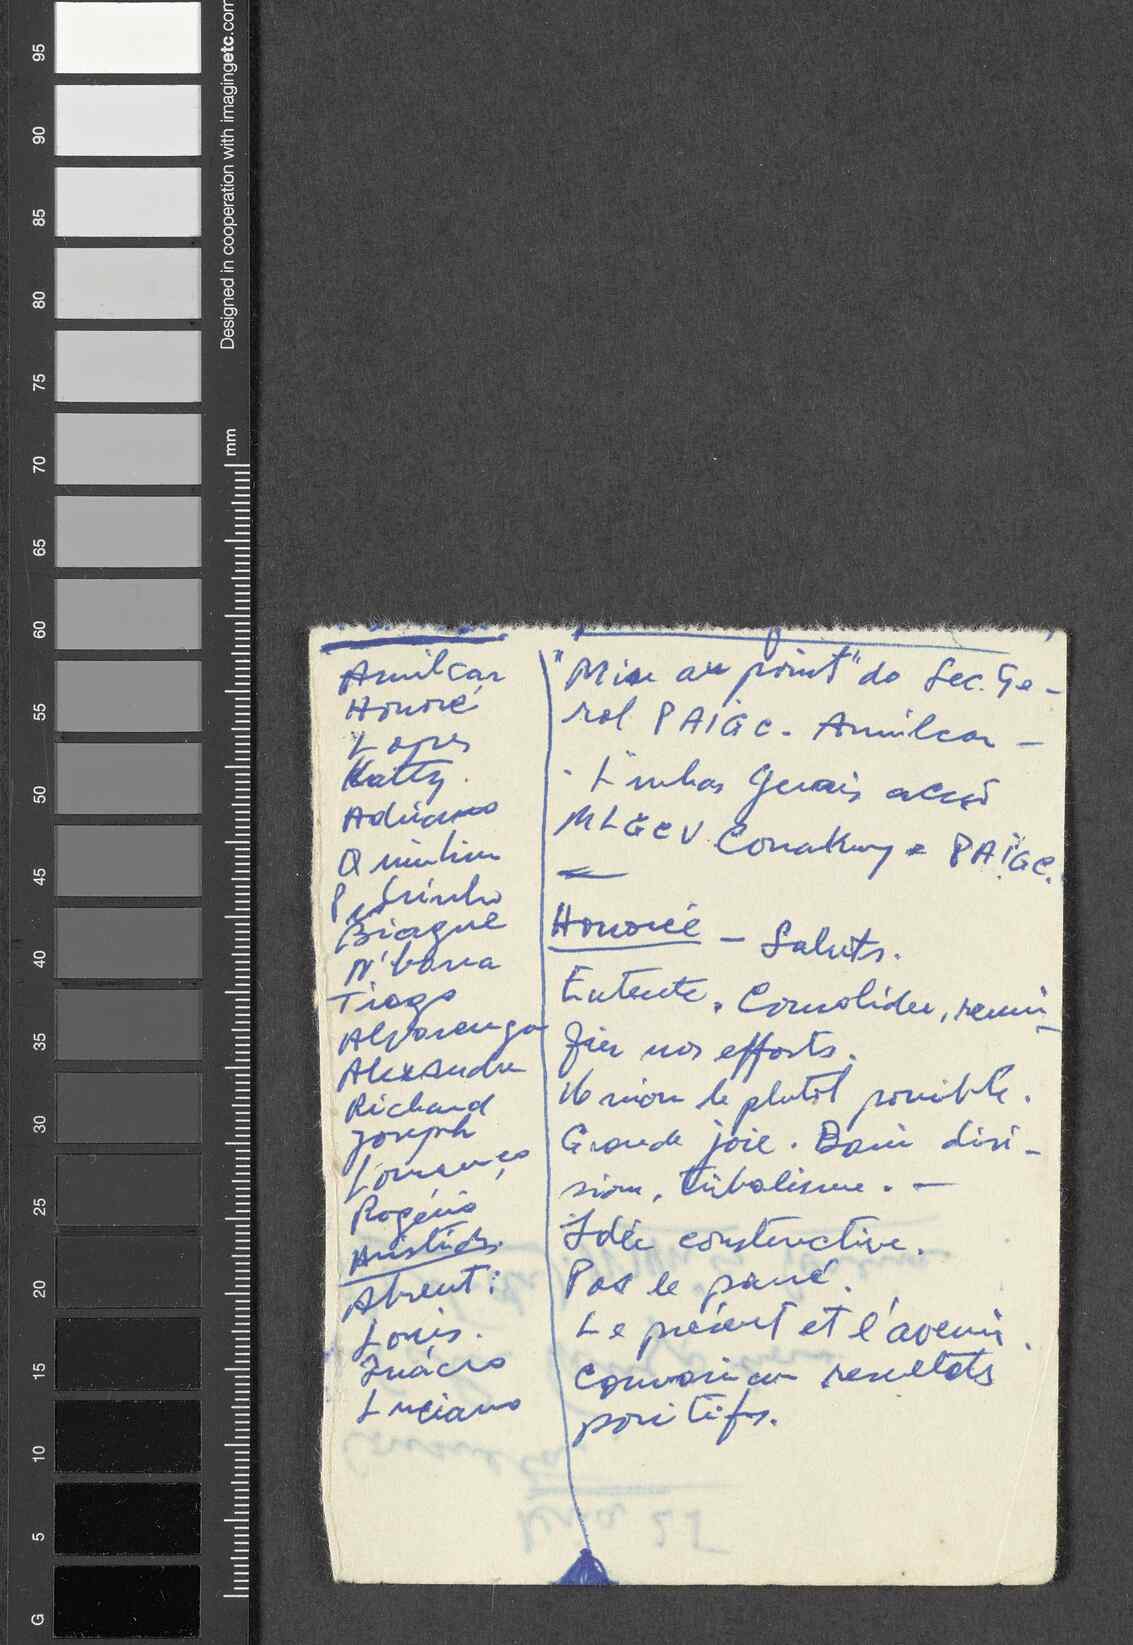 95
90
85
80
75
70
65
60
55
50
45
40
35
30
25
20
15
10
5
G
Designed in cooperation with imagingetc.com
mm
Amilcar
Honoré
Lopes
Katty.
Adriano
Quintin
Pedrinho
Biague
N'bana
Tiago
Alvarenga
Alexandre
Richard
Joseph
Lourenço
Rogério
Aristides.
Absent:
Louis.
Inácio
Luciano
"Mise au point" do Sec. Ge-
ral PAIGC. Amilcar -
. Linhas Gerais
MLGCV Conakry e PAIGC.
Honoré - Saluts.
Entente. Consolider,
fier nos efforts.
Union le plutôt possible.
Grande joie. Divi-
sion, tribalisme. -
Idée constructive.
Pas le passé.
Le présent et l'avenir.
resultats
positifs.